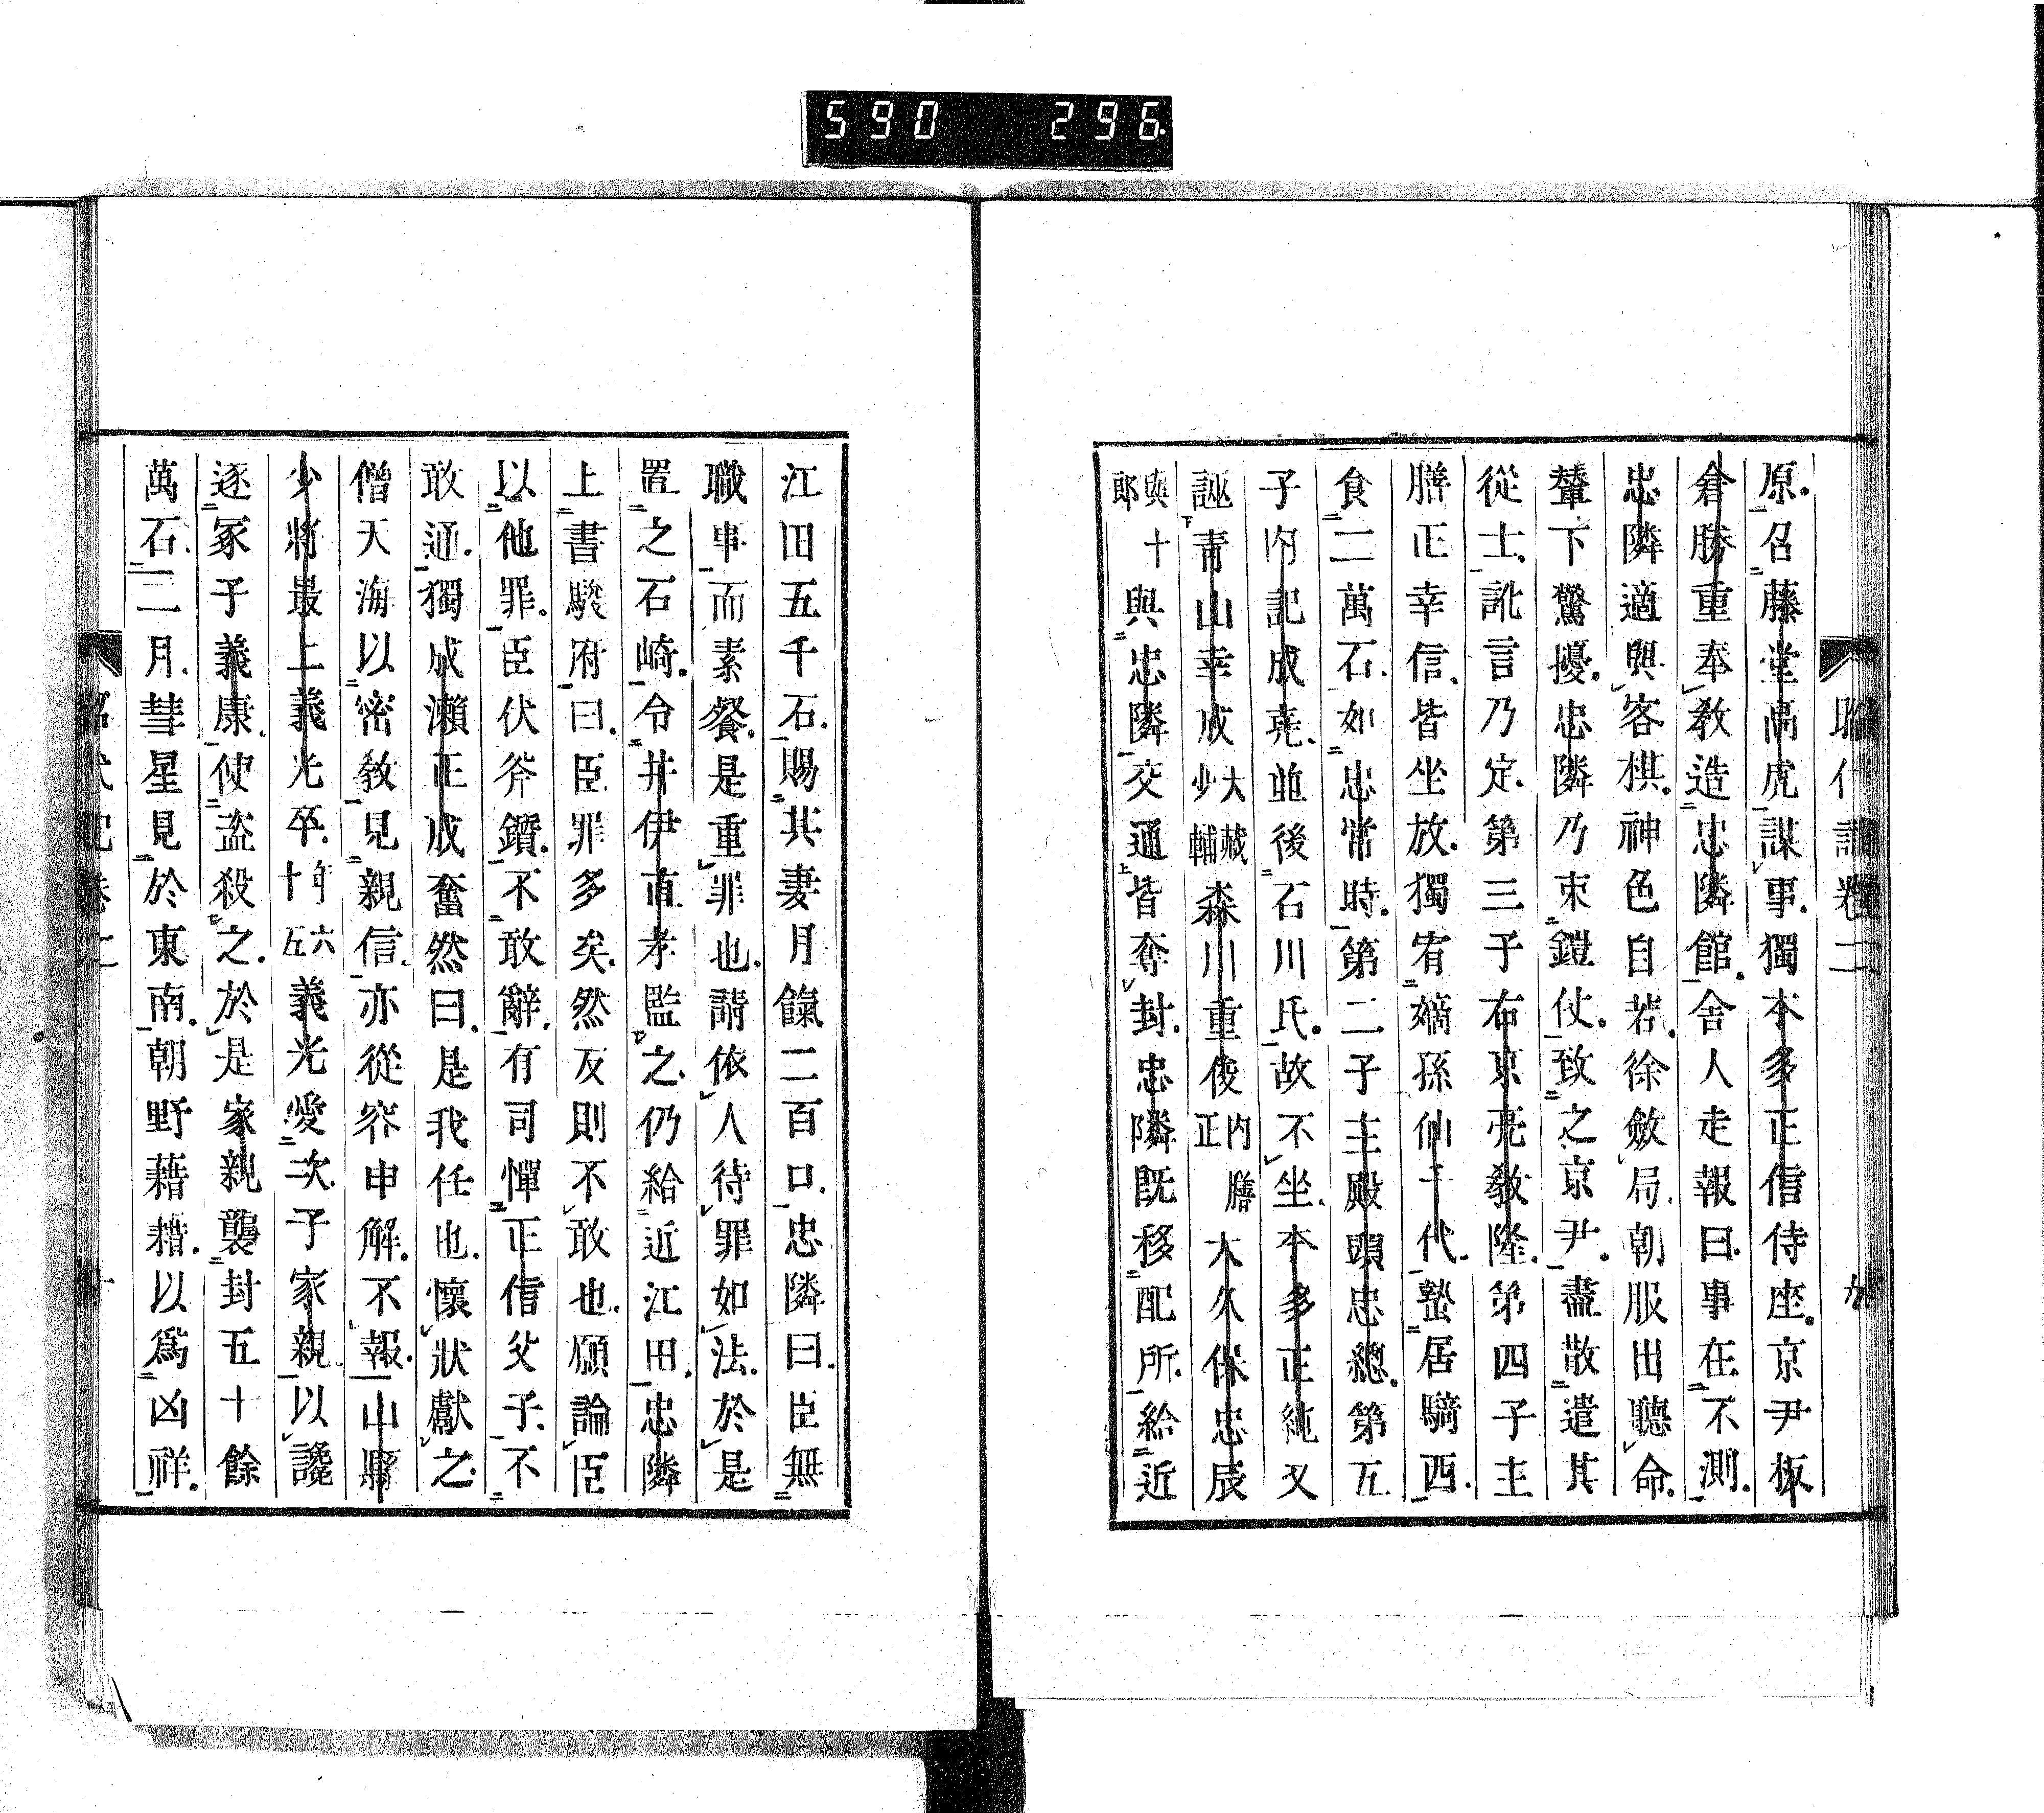 590 296
昭代記卷二 九
原召藤堂高虎謀事獨本多正信侍座京尹板
倉勝重奉敎造忠隣館舍人走報曰事在不測
忠隣適與客棋神色自若徐斂局朝服出聽命
輦下驚擾忠隣乃束鎧仗致之京尹盡散遣其
從士訛言乃定第三子右京亮敎隆第四子主
膳正幸信皆坐放獨宥嫡孫仙千代蟄居騎西
食二萬石如忠常時第二子主殿頭忠總第五
子內記成堯並後石川氏故不坐本多正純又
誣靑山幸成大藏少輔森川重俊內膳正大久保忠辰
與十郎與忠隣交通皆奪封忠隣旣移配所給近
江田五千石賜其妻月餼二百口忠隣曰臣無
職事而素餐是重罪也請依人待罪如法於是
置之石崎令井伊直孝監之仍給近江田忠隣
上書駿府曰臣罪多矣然反則不敢也願論臣
以他罪臣伏斧鑕不敢辭有司憚正信父子不
敢通獨成瀨正成奮然曰是我任也懷狀獻之
僧天海以密敎見親信亦從容申解不報山縣
少將最上義光卒年六十五義光愛次子家親以讒
逐冢子義康使盜殺之於是家親襲封五十餘
萬石二月彗星見於東南朝野藉藉以爲凶祥
昭代記卷二 十